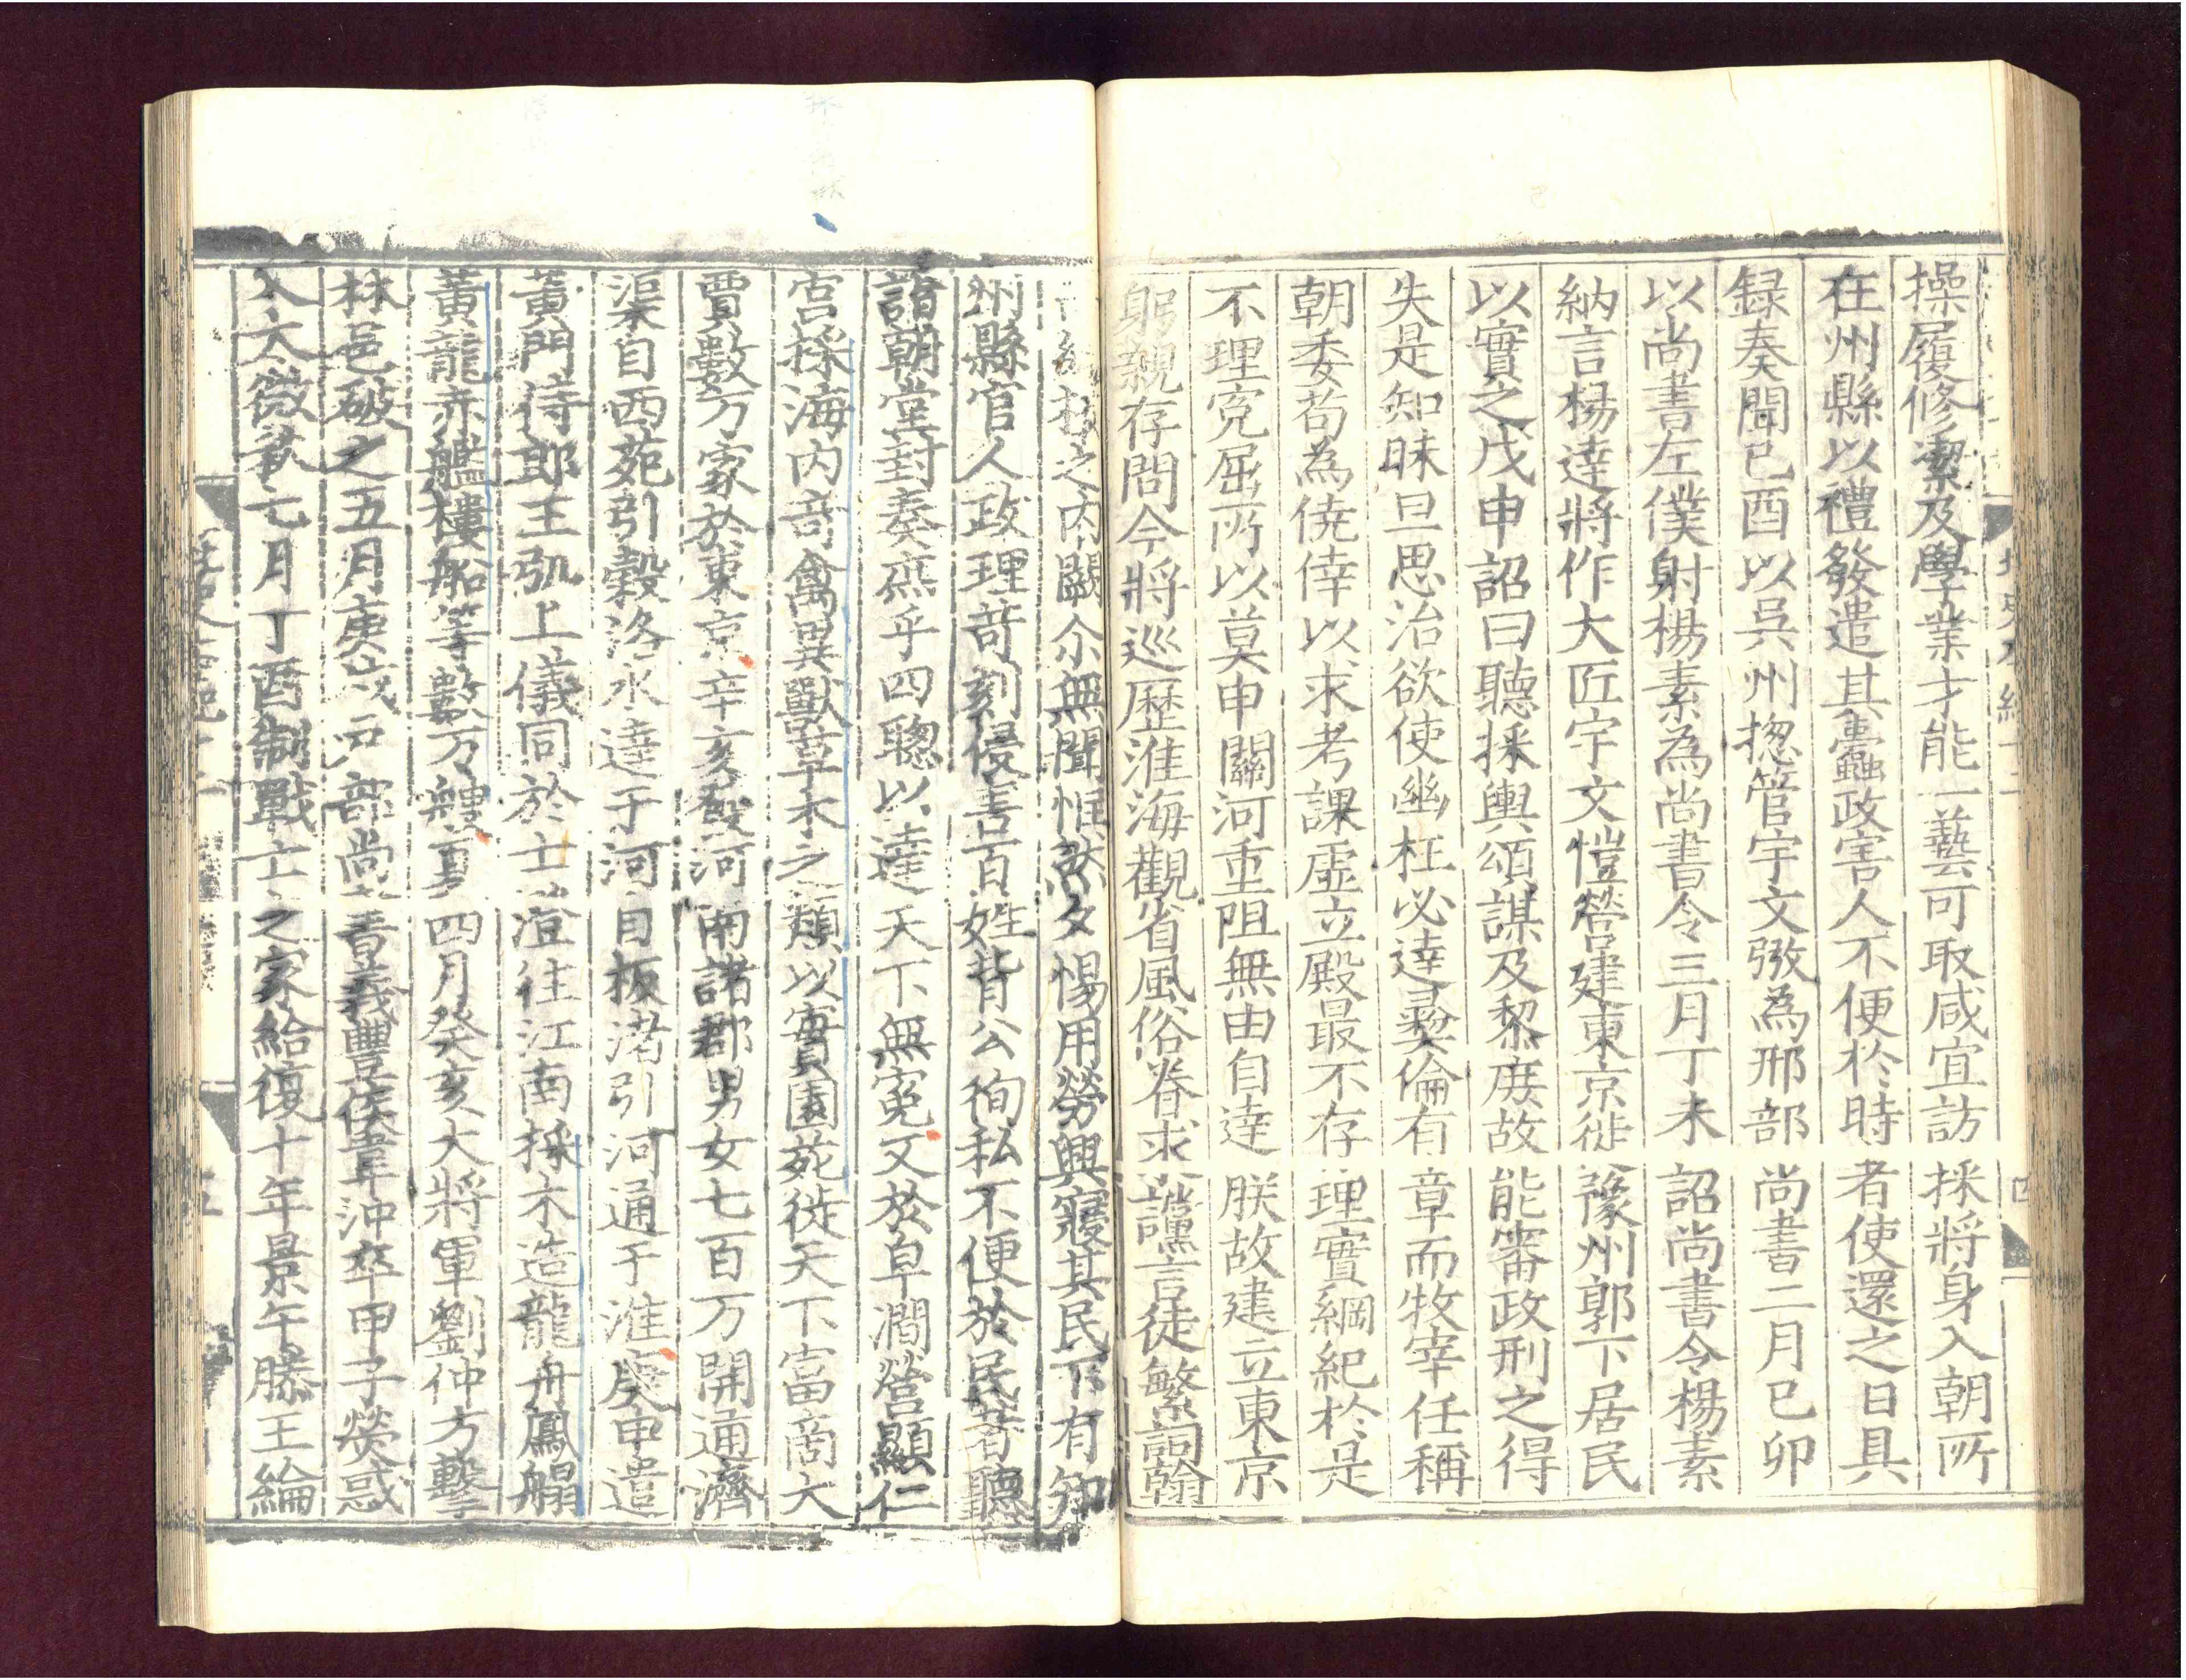 操履修潔及學業才能一藝可取咸宜訪採將身入朝所
在州縣以禮發遣其蠹政害人不便於時者使還之日具
録奏聞己酉以吳州揔管宇文㢸為邢部尚書二月已卯
以尚書左僕射楊素為尚書令三月丁未詔尚書令楊素
納言楊達將作大匠宇文愷營建東京徙豫州郭下居民
以實之戊申詔曰聽採輿頌謀及黎庶故能審政刑之得
失是知昧旦思治欲使幽枉必達彛倫有章而牧宰任稱
朝委苟為僥倖以求考課虛立殿最不存理實綱紀於是
不理寃屈所以莫申關河重阻無由自達朕故建立東京
躬親存問今將巡歷淮海觀省風俗眷求讜言徒繁詞翰
之內闕尒無聞惟然夕惕用勞興寢其民下有知
州縣官人政理苛刻侵害百姓背公徇私不便於民者聽
詣朝堂封奏庶乎四聰以達天下無寃又於皁澗營顯仁
宮採海內奇禽異獸草木之類以實園苑徙天下富商大
賈數万家於東京辛亥發河南諸郡男女七百万開通濟
渠自西苑引穀洛水達于河自板渚引河通于淮庚申遣
黃門侍郎王弘上儀同於士澄往江南採木造龍舟鳳䑽
黃龍赤艦樓船等數万艘夏四月癸亥大將軍劉仲方擊
林邑破之五月庚戌戸部尚書義豐侯韋沖卒甲子熒惑
入太微秋七月丁酉制戰士之家給復十年景午滕王綸